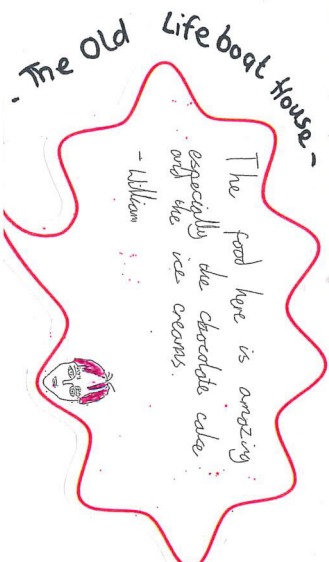 - The Old Lifeboat House -
The food here is amazing
especially the chocolate cake
and the ice creams.
- William